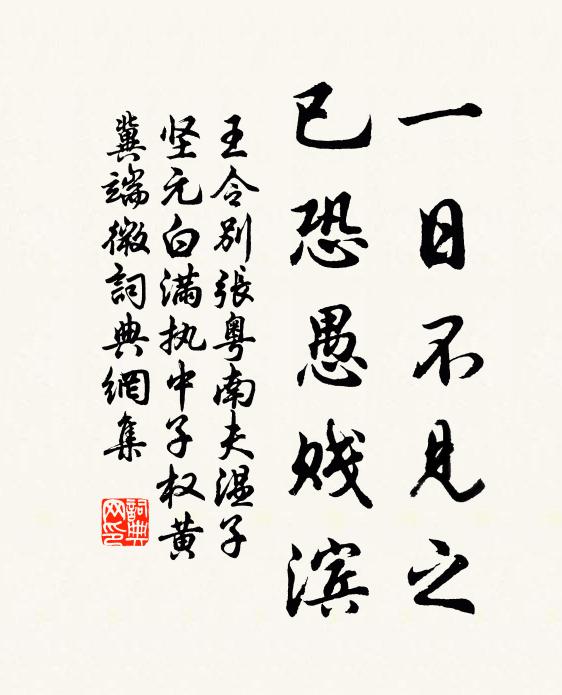 一日不見之
已恐愚贱滨
王令别張粤南夫温子
坚元白满执中子权黄
冀端微詞典網集
詞典
网印